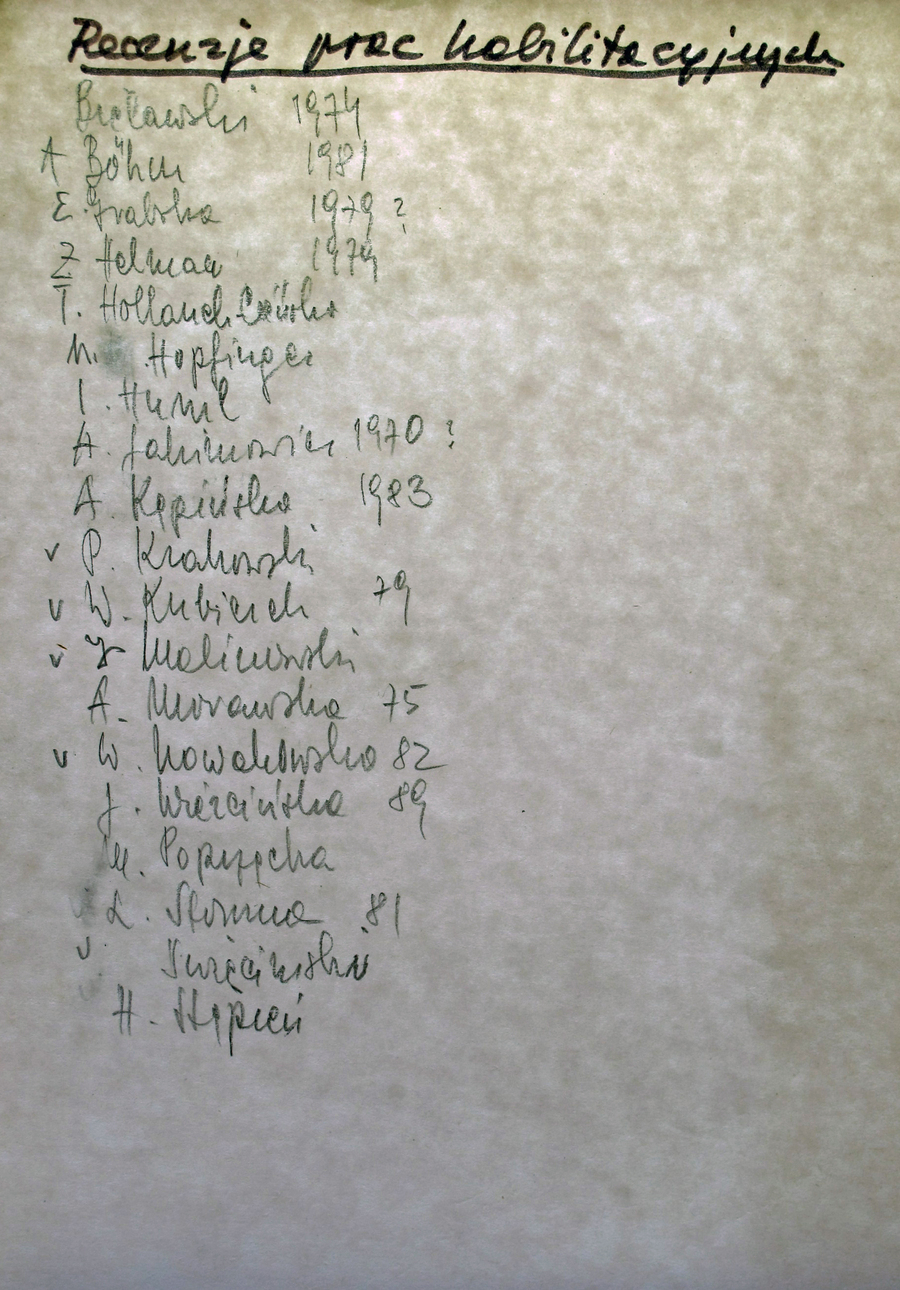 Recenzje prac habilitacyjnych
Białawski 1974
A Böhm 1981
E. Grabska 1979 ?
Z Helman 1974
T. Holland
M. Hopfinger
I. Huml
A. Jakimowicz 1970 ?
A. Kępińska 1983
v P. Krakowski
v W. Kubiach 79
v J Malinowski
A. Morawska 75
v W. Nowakowska 82
J. Wiercińska 89
M. Poprzęcka
L. Słomna 81
v
H. Stępień